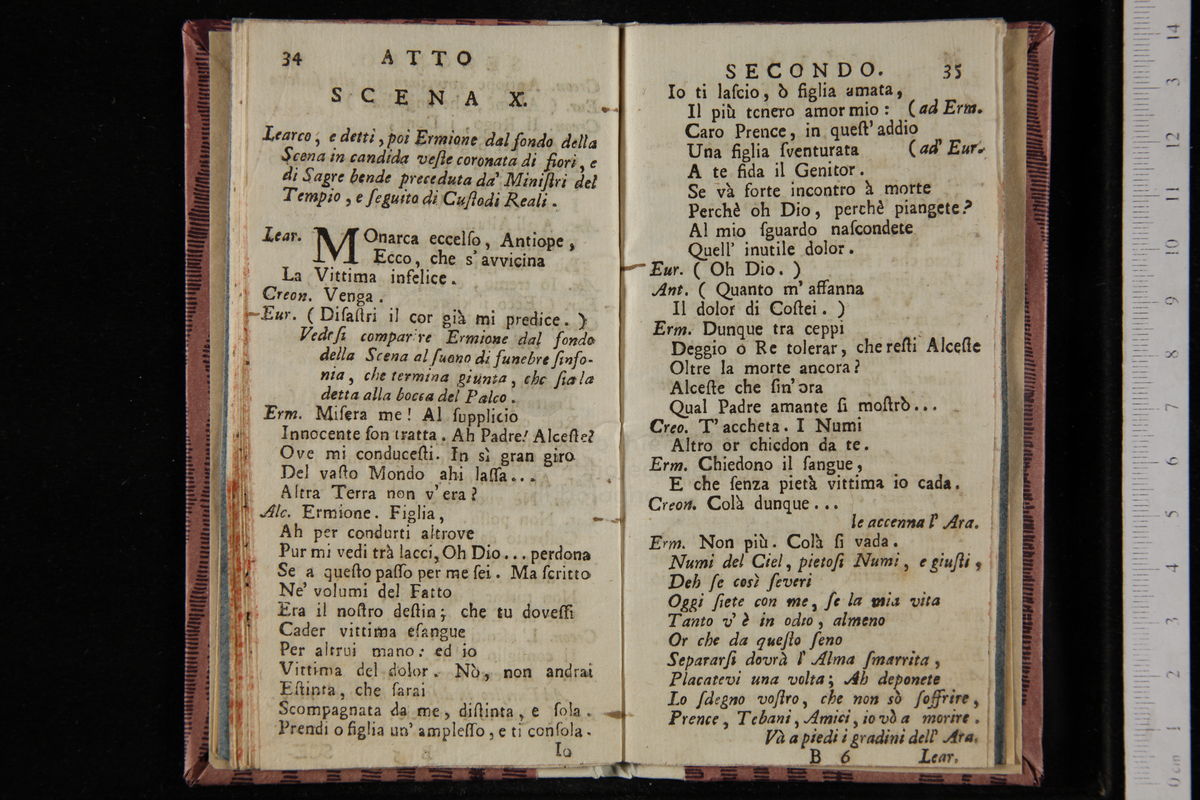 34 ATTO
SCENA X.
Learco, e detti, poi Ermione dal fondo della
Scena in candida veſte coronata di fiori, e
di Sagre bende preceduta da' Miniſtri del
Tempio, e ſeguito di Cuſtodi Reali.
Lear. MOnarca eccelſo, Antiope,
Ecco, che s'avvicina
La Vittima infelice.
Creon. Venga.
Eur. (Diſaſtri il cor già mi predice.)
Vedeſi comparire Ermione dal fondo
della Scena al ſuono di funebre ſinfo-
nia, che termina giunta, che ſia la
detta alla bocca del Palco.
Erm. Miſera me! Al ſupplicio
Innocente ſon tratta. Ah Padre! Alceſte?
Ove mi conduceſti. In sì gran giro
Del vaſto Mondo ahi laſſa...
Altra Terra non v'era?
Alc. Ermione. Figlia,
Ah per condurti altrove
Pur mi vedi trà lacci, Oh Dio... perdona
Se a queſto paſſo per me ſei. Ma ſcritto
Ne' volumi del Fatto
Era il noſtro deſtin; che tu doveſſi
Cader vittima eſangue
Per altrui mano: ed io
Vittima del dolor. Nò, non andrai
Eſtinta, che ſarai
Scompagnata da me, diſtinta, e ſola.
Prendi o figlia un' ampleſſo, e ti conſola.
Io
SECONDO. 35
Io ti laſcio, ò figlia amata,
Il più tenero amor mio: (ad Erm.
Caro Prence, in queſt' addio
Una figlia ſventurata (ad' Eur.
A te fida il Genitor.
Se và forte incontro à morte
Perchè oh Dio, perchè piangete?
Al mio ſguardo naſcondete
Quell' inutile dolor.
Eur. (Oh Dio.)
Ant. (Quanto m' affanna
Il dolor di Coſtei.)
Erm. Dunque tra ceppi
Deggio o Re tolerar, che reſti Alceſte
Oltre la morte ancora?
Alceſte che ſin' ora
Qual Padre amante ſi moſtrò...
Creo. T' accheta. I Numi
Altro or chiedon da te.
Erm. Chiedono il ſangue,
E che ſenza pietà vittima io cada.
Creon. Colà dunque...
le accenna l' Ara.
Erm. Non più. Colà ſi vada.
Numi del Ciel, pietoſi Numi, e giuſti,
Deh ſe così ſeveri
Oggi ſiete con me, ſe la mia vita
Tanto v' è in odio, almeno
Or che da queſto ſeno
Separarſi dovrà l' Alma ſmarrita,
Placatevi una volta; Ah deponete
Lo ſdegno voſtro, che non sò ſoffrire,
Prence, Tebani, Amici, io vò a morire.
Và a piedi i gradini dell' Ara.
B 6 Lear.
0 cm 1 2 3 4 5 6 7 8 9 10 11 12 13 14